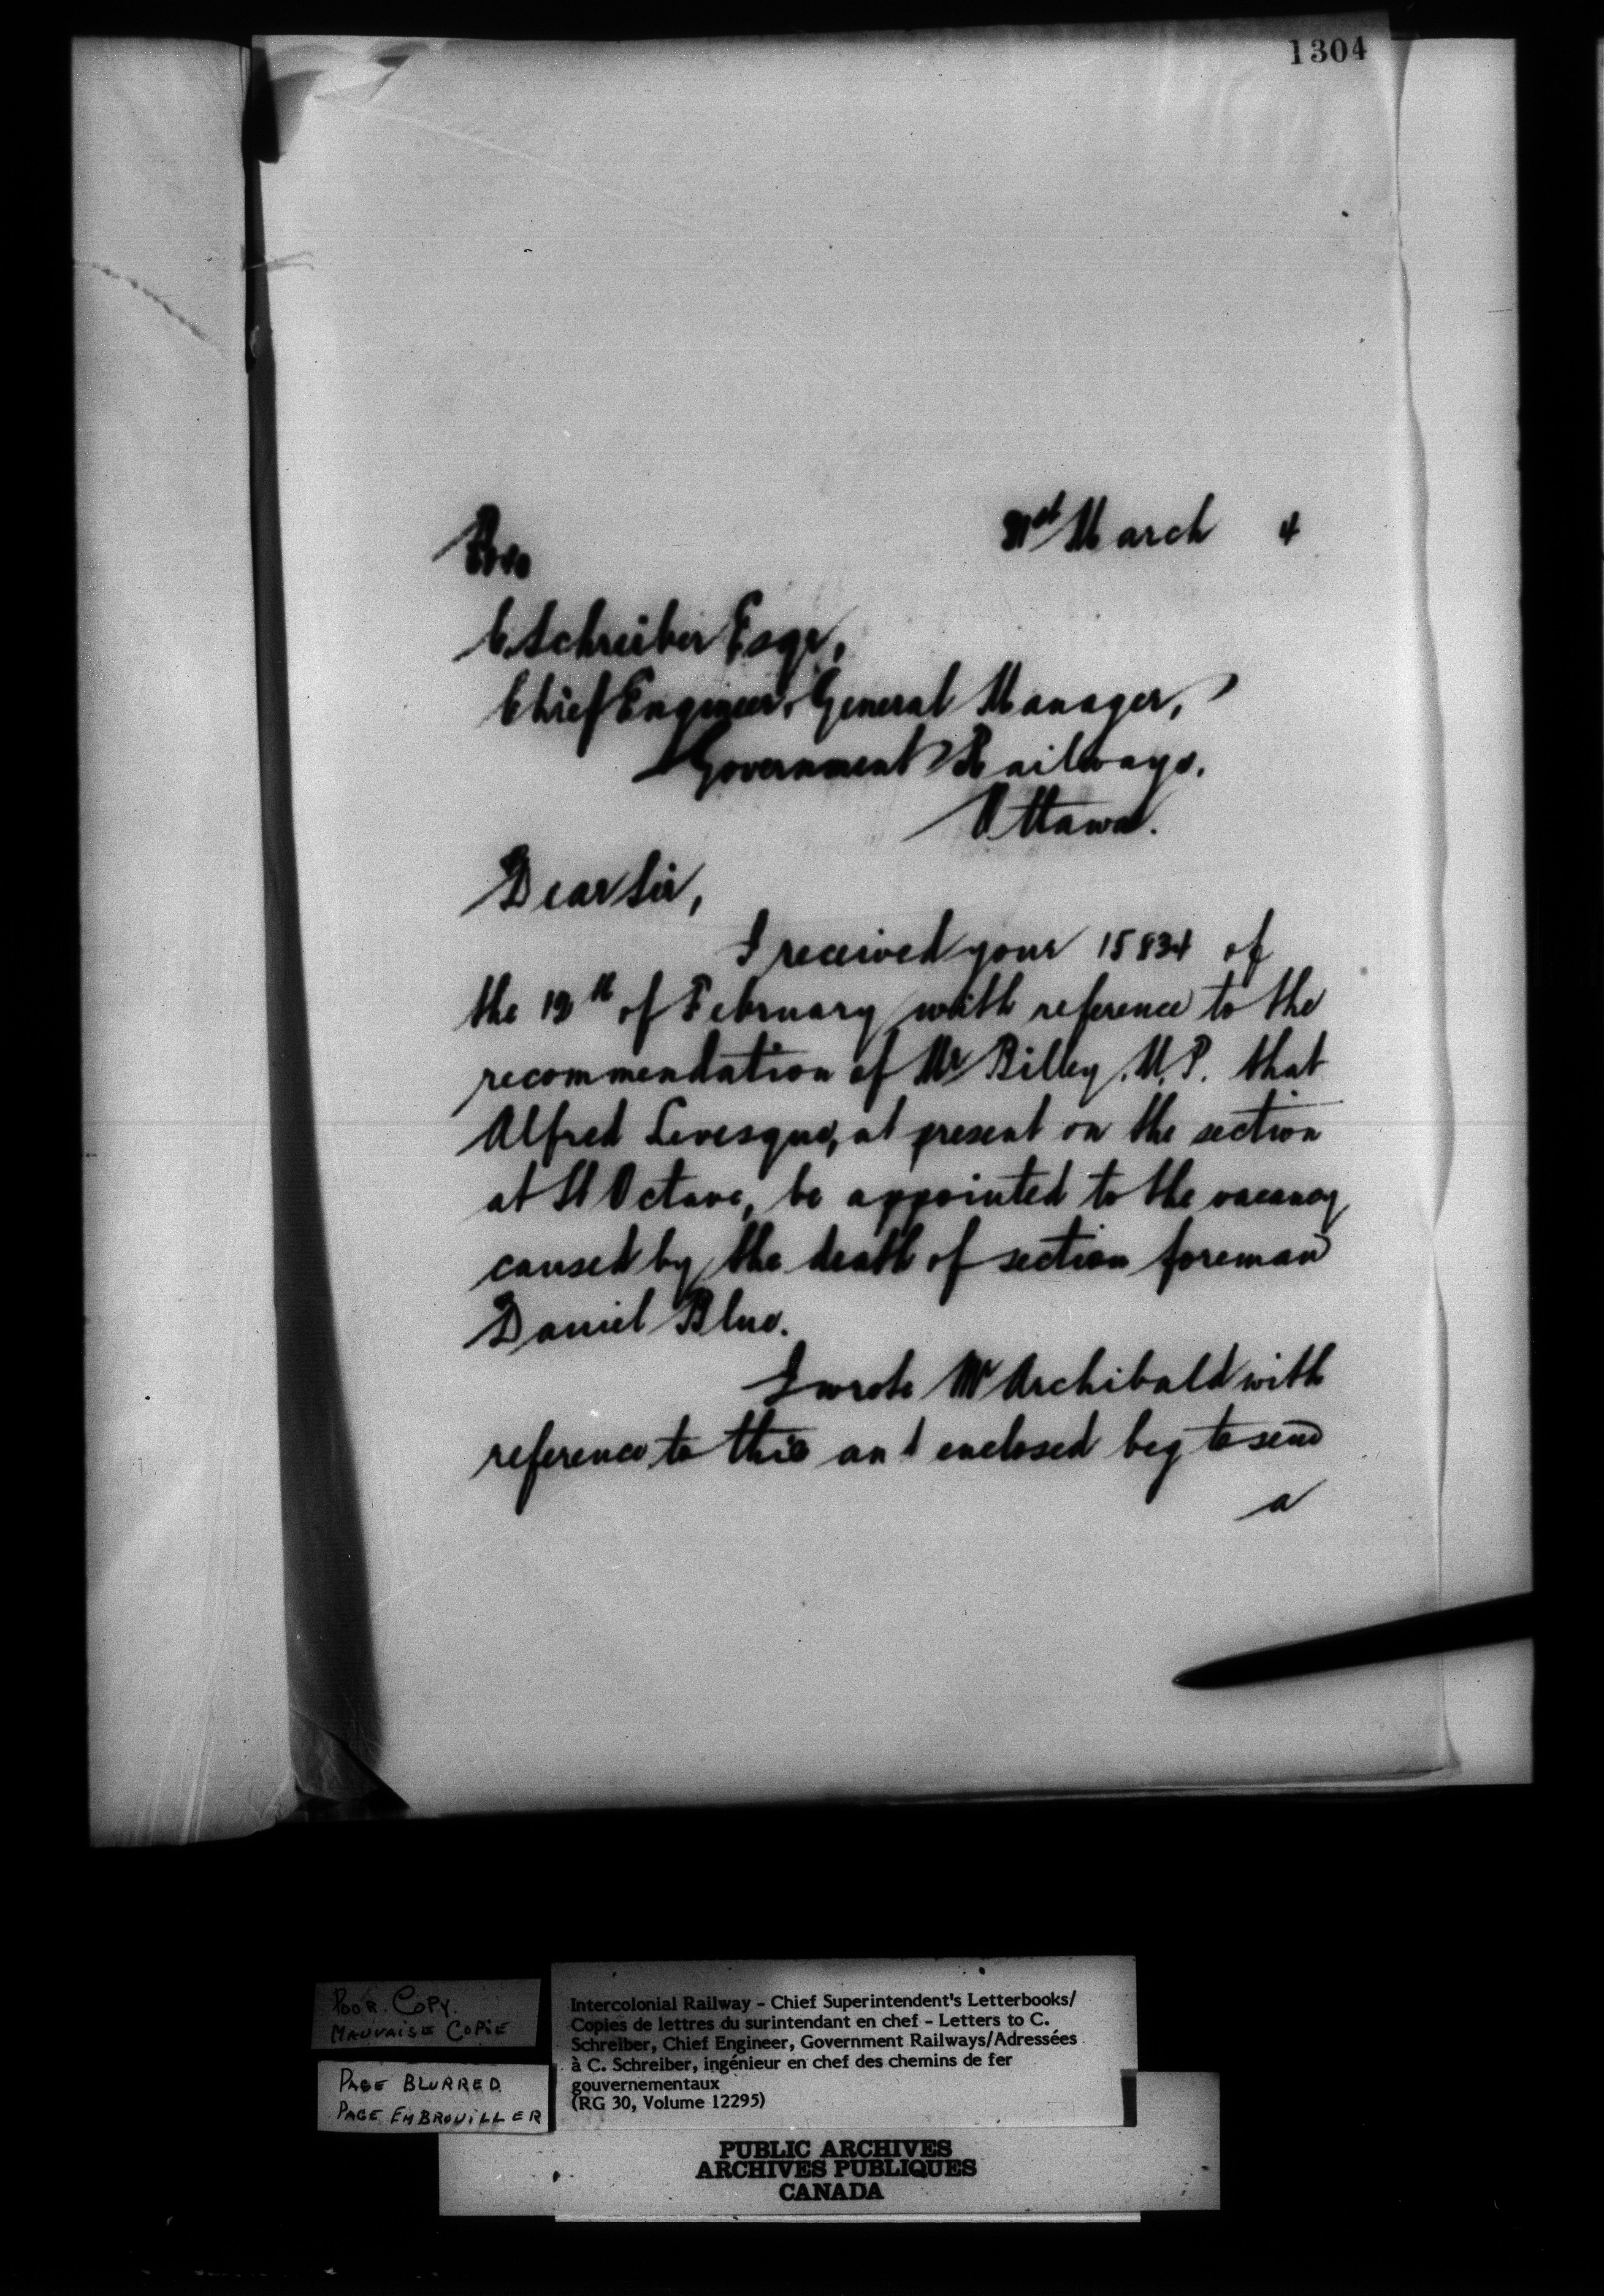 1304
31st March 4
C Schreiber Esqr,
Chief Engineer & General Manager,
Government Railways.
Ottawa.
Dear Sir,
I received your 15834 of
the 12th of February with reference to the
recommendation of Mr Billey, M.P. that
Alfred Levesque, at present on the section
at St Octave, be appointed to the vacancy
caused by the death of section foreman
Daniel Blue.
I wrote Mr Archibald with
reference to this and enclosed beg to send
a
POOR. COPY.
MAUVAISE COPIE
PAGE BLURRED
PAGE EMBROUILLER
Intercolonial Railway - Chief Superintendent's Letterbooks/
Copies de lettres du surintendant en chef - Letters to C.
Schreiber, Chief Engineer, Government Railways/Adressées
à C. Schreiber, ingénieur en chef des chemins de fer
gouvernementaux
(RG 30, Volume 12295)
PUBLIC ARCHIVES
ARCHIVES PUBLIQUES
CANADA